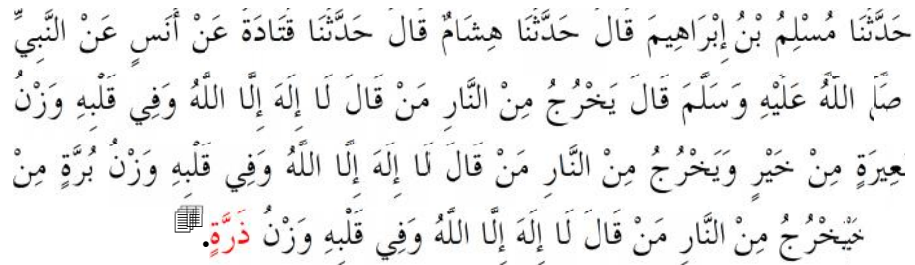 حَدَّثَنَا مُسْلِمُ بْنُ إِبْرَاهِيمَ قَالَ حَدَّثَنَا هِشَامٌ قَالَ حَدَّثَنَا قَتَادَةُ عَنْ أَنَسٍ عَنْ النَّبِيِّ
صَلَّى اللَّهُ عَلَيْهِ وَسَلَّمَ قَالَ يَخْرُجُ مِنْ النَّارِ مَنْ قَالَ لَا إِلَهَ إِلَّا اللَّهُ وَفِي قَلْبِهِ وَزْنُ
عِيرَةٍ مِنْ خَيْرٍ وَيَخْرُجُ مِنْ النَّارِ مَنْ قَالَ لَا إِلَهَ إِلَّا اللَّهُ وَفِي قَلْبِهِ وَزْنُ بُرَّةٍ مِنْ
خَيْخْرُجُ مِنْ النَّارِ مَنْ قَالَ لَا إِلَهَ إِلَّا اللَّهُ وَفِي قَلْبِهِ وَزْنُ ذَرَّةٍ.